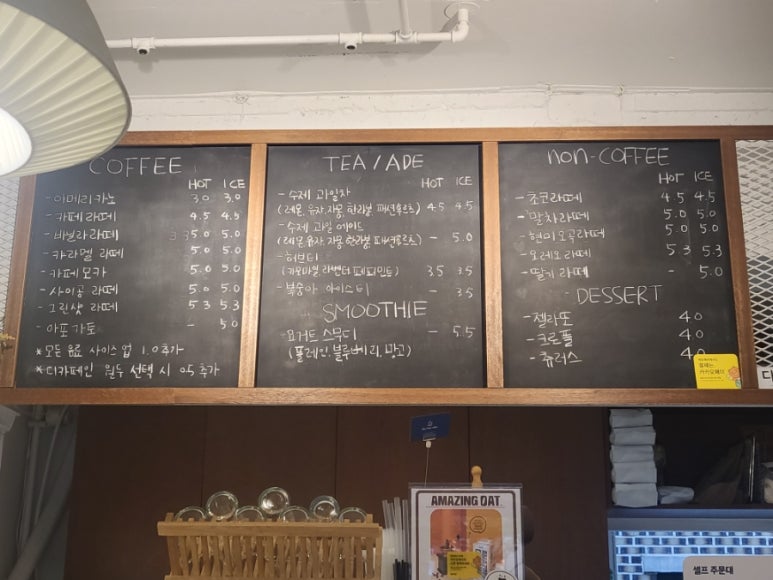 COFFEE
HOT ICE
- 아메리카노 3.0 3.0
- 카페라떼 4.5 4.5
- 바닐라라떼 5.0 5.0
- 카라멜 라떼 5.0 5.0
- 카페 모카 5.0 5.0
- 사이공 라떼 5.0 5.0
- 그린샷 라떼 5.3 5.3
- 아포가토 - 5.0
* 모든 음료 사이즈 업 1.0 추가
* 디카페인 원두 선택 시 0.5 추가
TEA / ADE
HOT ICE
- 수제 과일차
(레몬, 유자, 자몽, 한라봉, 패션후르츠) 4.5 4.5
- 수제 과일 에이드
(레몬, 유자, 자몽, 한라봉, 패션후르츠) - 5.0
- 허브티
(카모마일, 라벤더, 페퍼민트) 3.5 3.5
- 복숭아 아이스티 - 3.5
SMOOTHIE
- 요거트 스무디 - 5.5
(플레인, 블루베리, 망고)
NON-COFFEE
HOT ICE
- 초코라떼 4.5 4.5
- 말차라떼 5.0 5.0
- 현미오곡라떼 5.0 5.0
- 오레오라떼 5.3 5.3
- 딸기라떼 - 5.0
DESSERT
- 젤라또 4.0
- 크로플 4.0
- 츄러스 4.0
카카오페이
AMAZING OAT
셀프 주문대